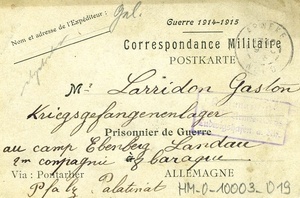 Guerre 1914-1915
Nom et adresse de l'Expéditeur :
Correspondance Militaire
POSTKARTE
Mr Larridon Gaston
Kriegsgefangenenlager
Prisonnier de Guerre
au camp Ebenberg Landau
2me compagnie baraque
Via : Pontarlier ALLEMAGNE
Pfalz Palatinat HM-0-10003-D19